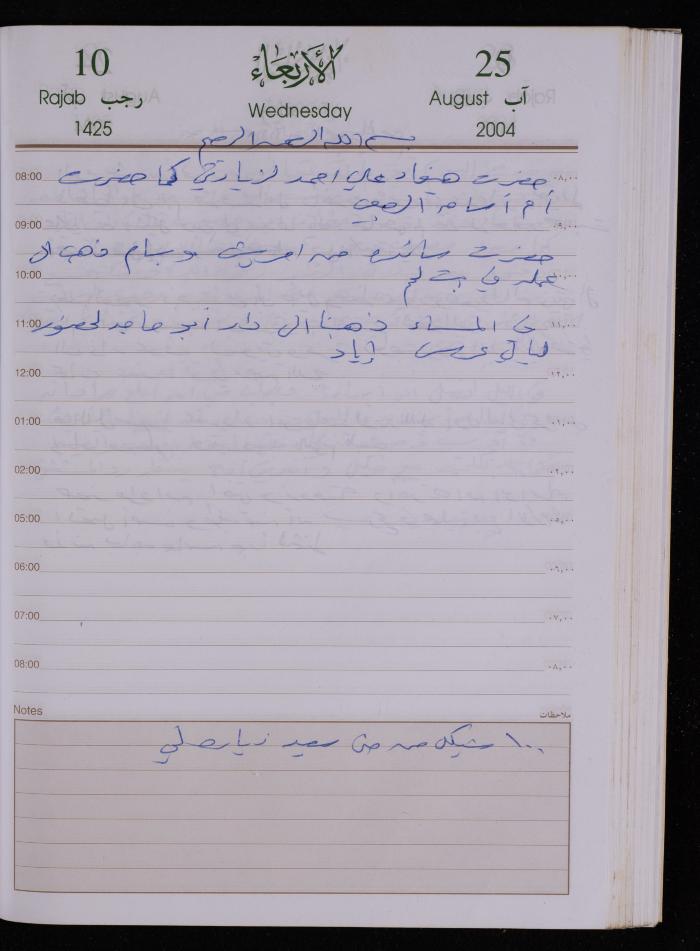 10
Rajab رجب
1425
الأربعاء
Wednesday
25
August آب
2004
بسم الله الرحمن الرحيم
08:00 حضرت هيفاء علي احمد لزيارتي كما حضرت ٠٨,٠٠
أم أسامه
09:00 ٠٩,٠٠
حضرت سائده من امريش وبسام ذهب الى
10:00 عمله في بيت لحم ١٠,٠٠
11:00 في المساء ذهبنا الى دار أبو ماجد لحضور ١١,٠٠
ليالي عرس إياد
12:00 ١٢,٠٠
01:00 ٠١,٠٠
02:00 ٠٢,٠٠
05:00 ٠٥,٠٠
06:00 ٠٦,٠٠
07:00 ٠٧,٠٠
08:00 ٠٨,٠٠
Notes ملاحظات
١٠٠ شيكل من سعيد زياره لي